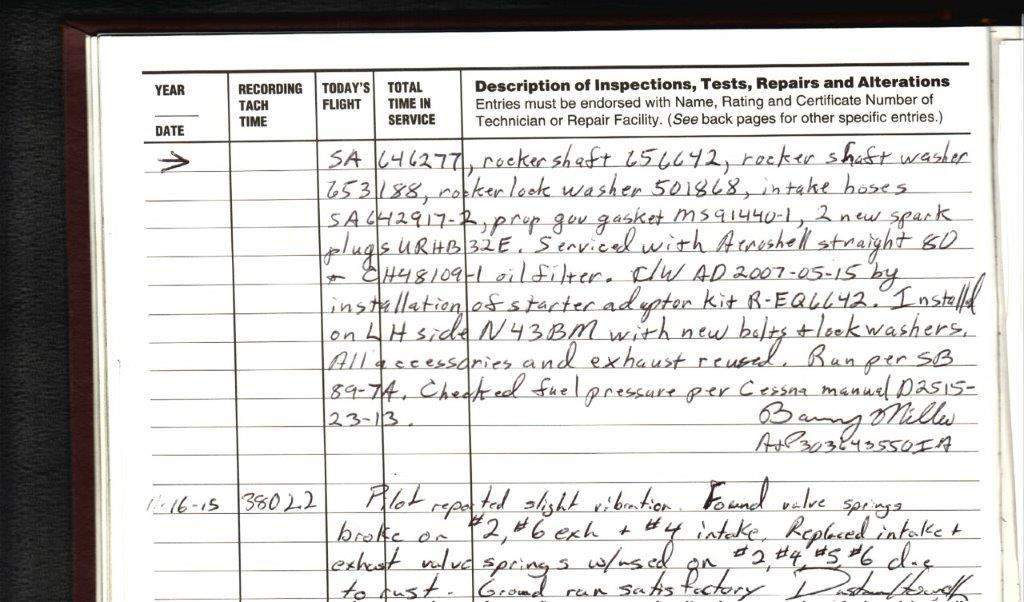 YEAR
DATE
RECORDING TACH TIME
TODAY'S FLIGHT
TOTAL TIME IN SERVICE
Description of Inspections, Tests, Repairs and Alterations
Entries must be endorsed with Name, Rating and Certificate Number of
Technician or Repair Facility. (See back pages for other specific entries.)
→ SA 646277, rocker shaft 656642, rocker shaft washer
653188, rocker lock washer 501868, intake hoses
SA642917-2, prop gov gasket MS91440-1, 2 new spark
plugs URHB32E. Serviced with Aeroshell straight 80
+ CH48109-1 oil filter. C/W AD 2007-05-15 by
installation of starter adaptor kit R-EQ6642. Installed
on LH side N43BM with new bolts + lockwashers.
All accessories and exhaust reused. Run per SB
89-7A. Checked fuel pressure per Cessna manual D2515-
23-13.
Barry Miller
A+P303643550IA
16-15 3802.2 Pilot reported slight vibration. Found valve springs
broke on #2, #6 exh + #4 intake. Replaced intake +
exhaust valve springs w/used on #2, #4, #5, #6 due
to rust. Ground run satisfactory